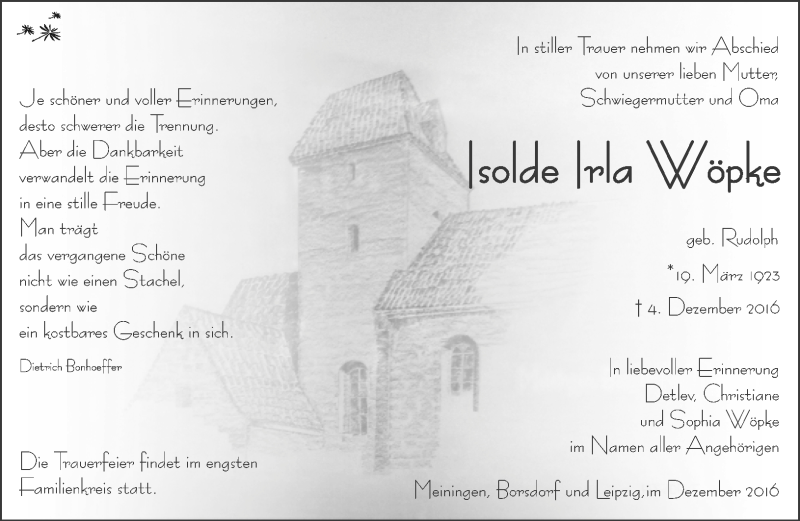 Je schöner und voller Erinnerungen,
desto schwerer die Trennung.
Aber die Dankbarkeit
verwandelt die Erinnerung
in eine stille Freude.
Man trägt
das vergangene Schöne
nicht wie einen Stachel,
sondern wie
ein kostbares Geschenk in sich.
Dietrich Bonhoeffer
Die Trauerfeier findet im engsten
Familienkreis statt.
In stiller Trauer nehmen wir Abschied
von unserer lieben Mutter,
Schwiegermutter und Oma
Isolde Irla Wöpke
geb. Rudolph
*19. März 1923
† 4. Dezember 2016
In liebevoller Erinnerung
Detlev, Christiane
und Sophia Wöpke
im Namen aller Angehörigen
Meiningen, Borsdorf und Leipzig,im Dezember 2016